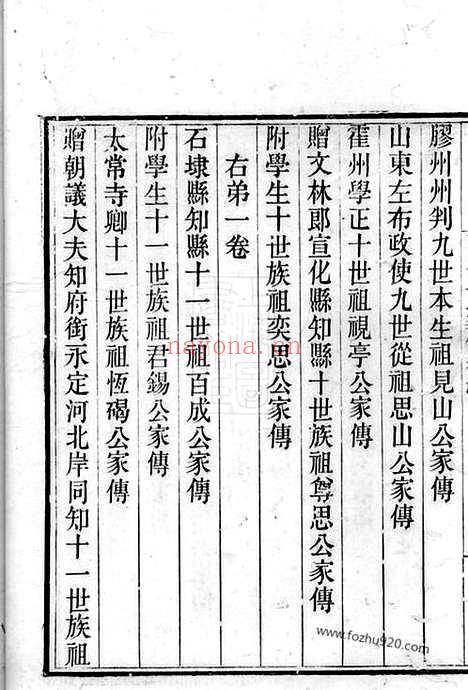 膠州州判九世本生祖見山公家傳
山東左布政使九世從祖思山公家傳
霍州學正十世祖視亭公家傳
贈文林郎宣化縣知縣十世族祖尊思公家傳
附學生十世族祖奕思公家傳
右弟一卷
石埭縣知縣十一世祖百成公家傳
附學生十一世族祖君錫公家傳
太常寺卿十一世族祖恆碣公家傳
贈朝議大夫知府銜永定河北岸同知十一世族祖
nayona.cn
www.fozhu920.com